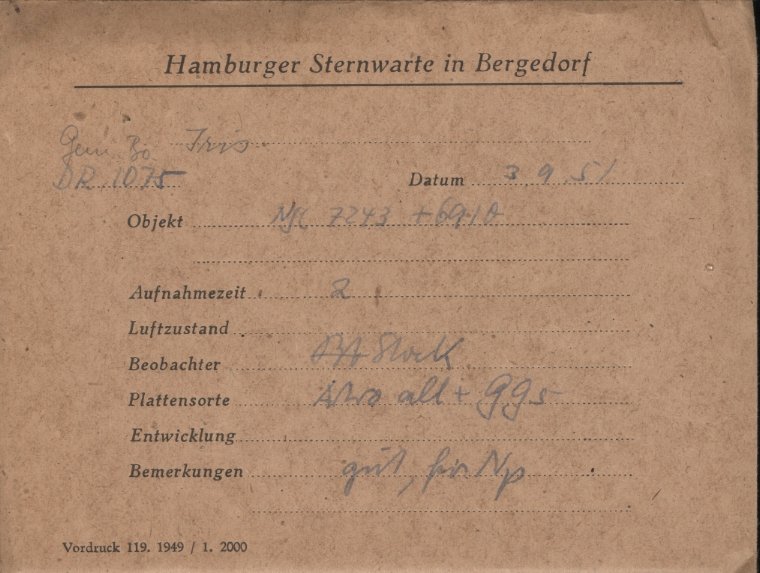 Hamburger Sternwarte in Bergedorf
Iris
DR 1075
Datum 3.9.51
Objekt NGC 7243
Aufnahmezeit 2
Luftzustand
Beobachter Stock
Plattensorte Astro all + GG5
Entwicklung
Bemerkungen gut, für Np
Vordruck 119. 1949 / 1. 2000